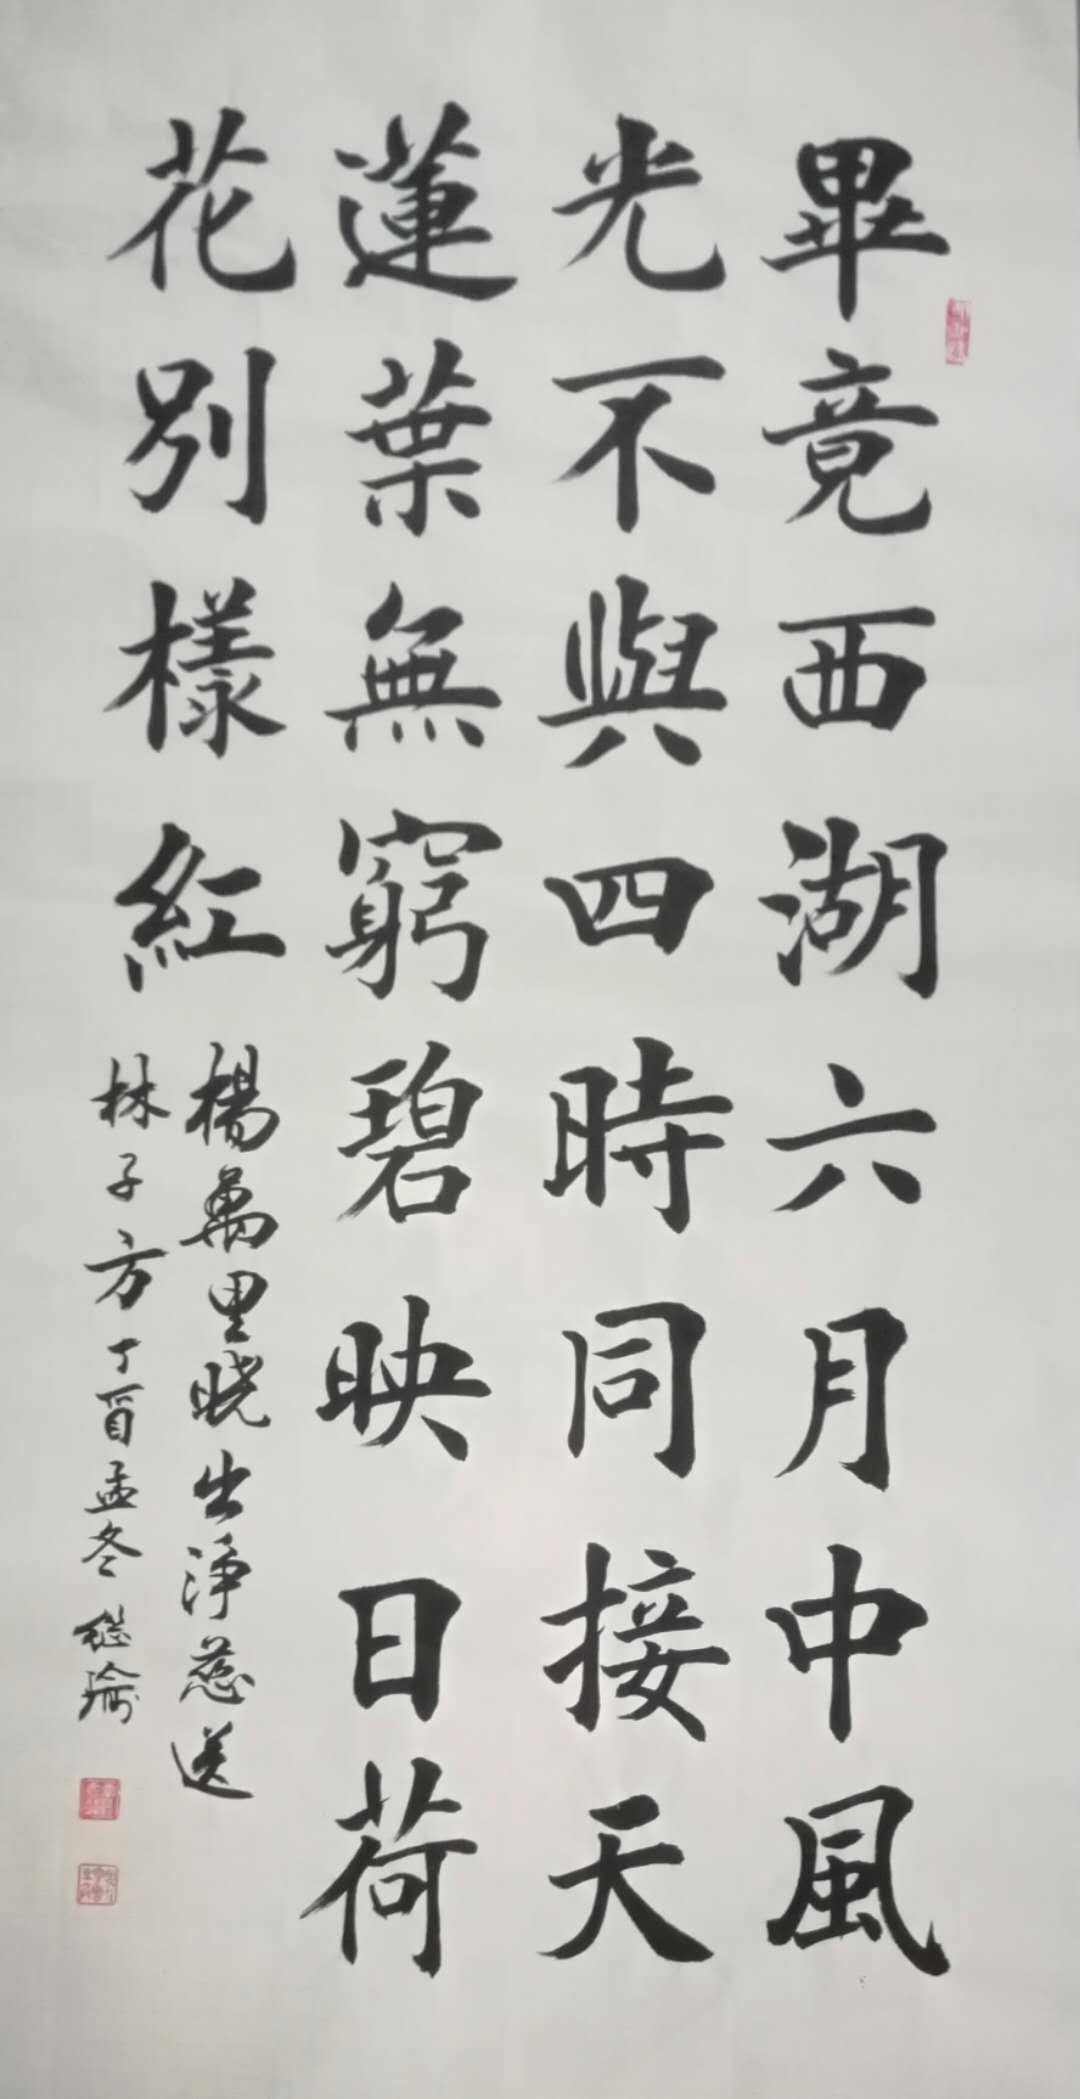 畢竟西湖六月中風
光不與四時同接天
蓮葉無窮碧映日荷
花別樣紅
楊萬里晓出淨慈送
林子方丁酉孟冬继瑜